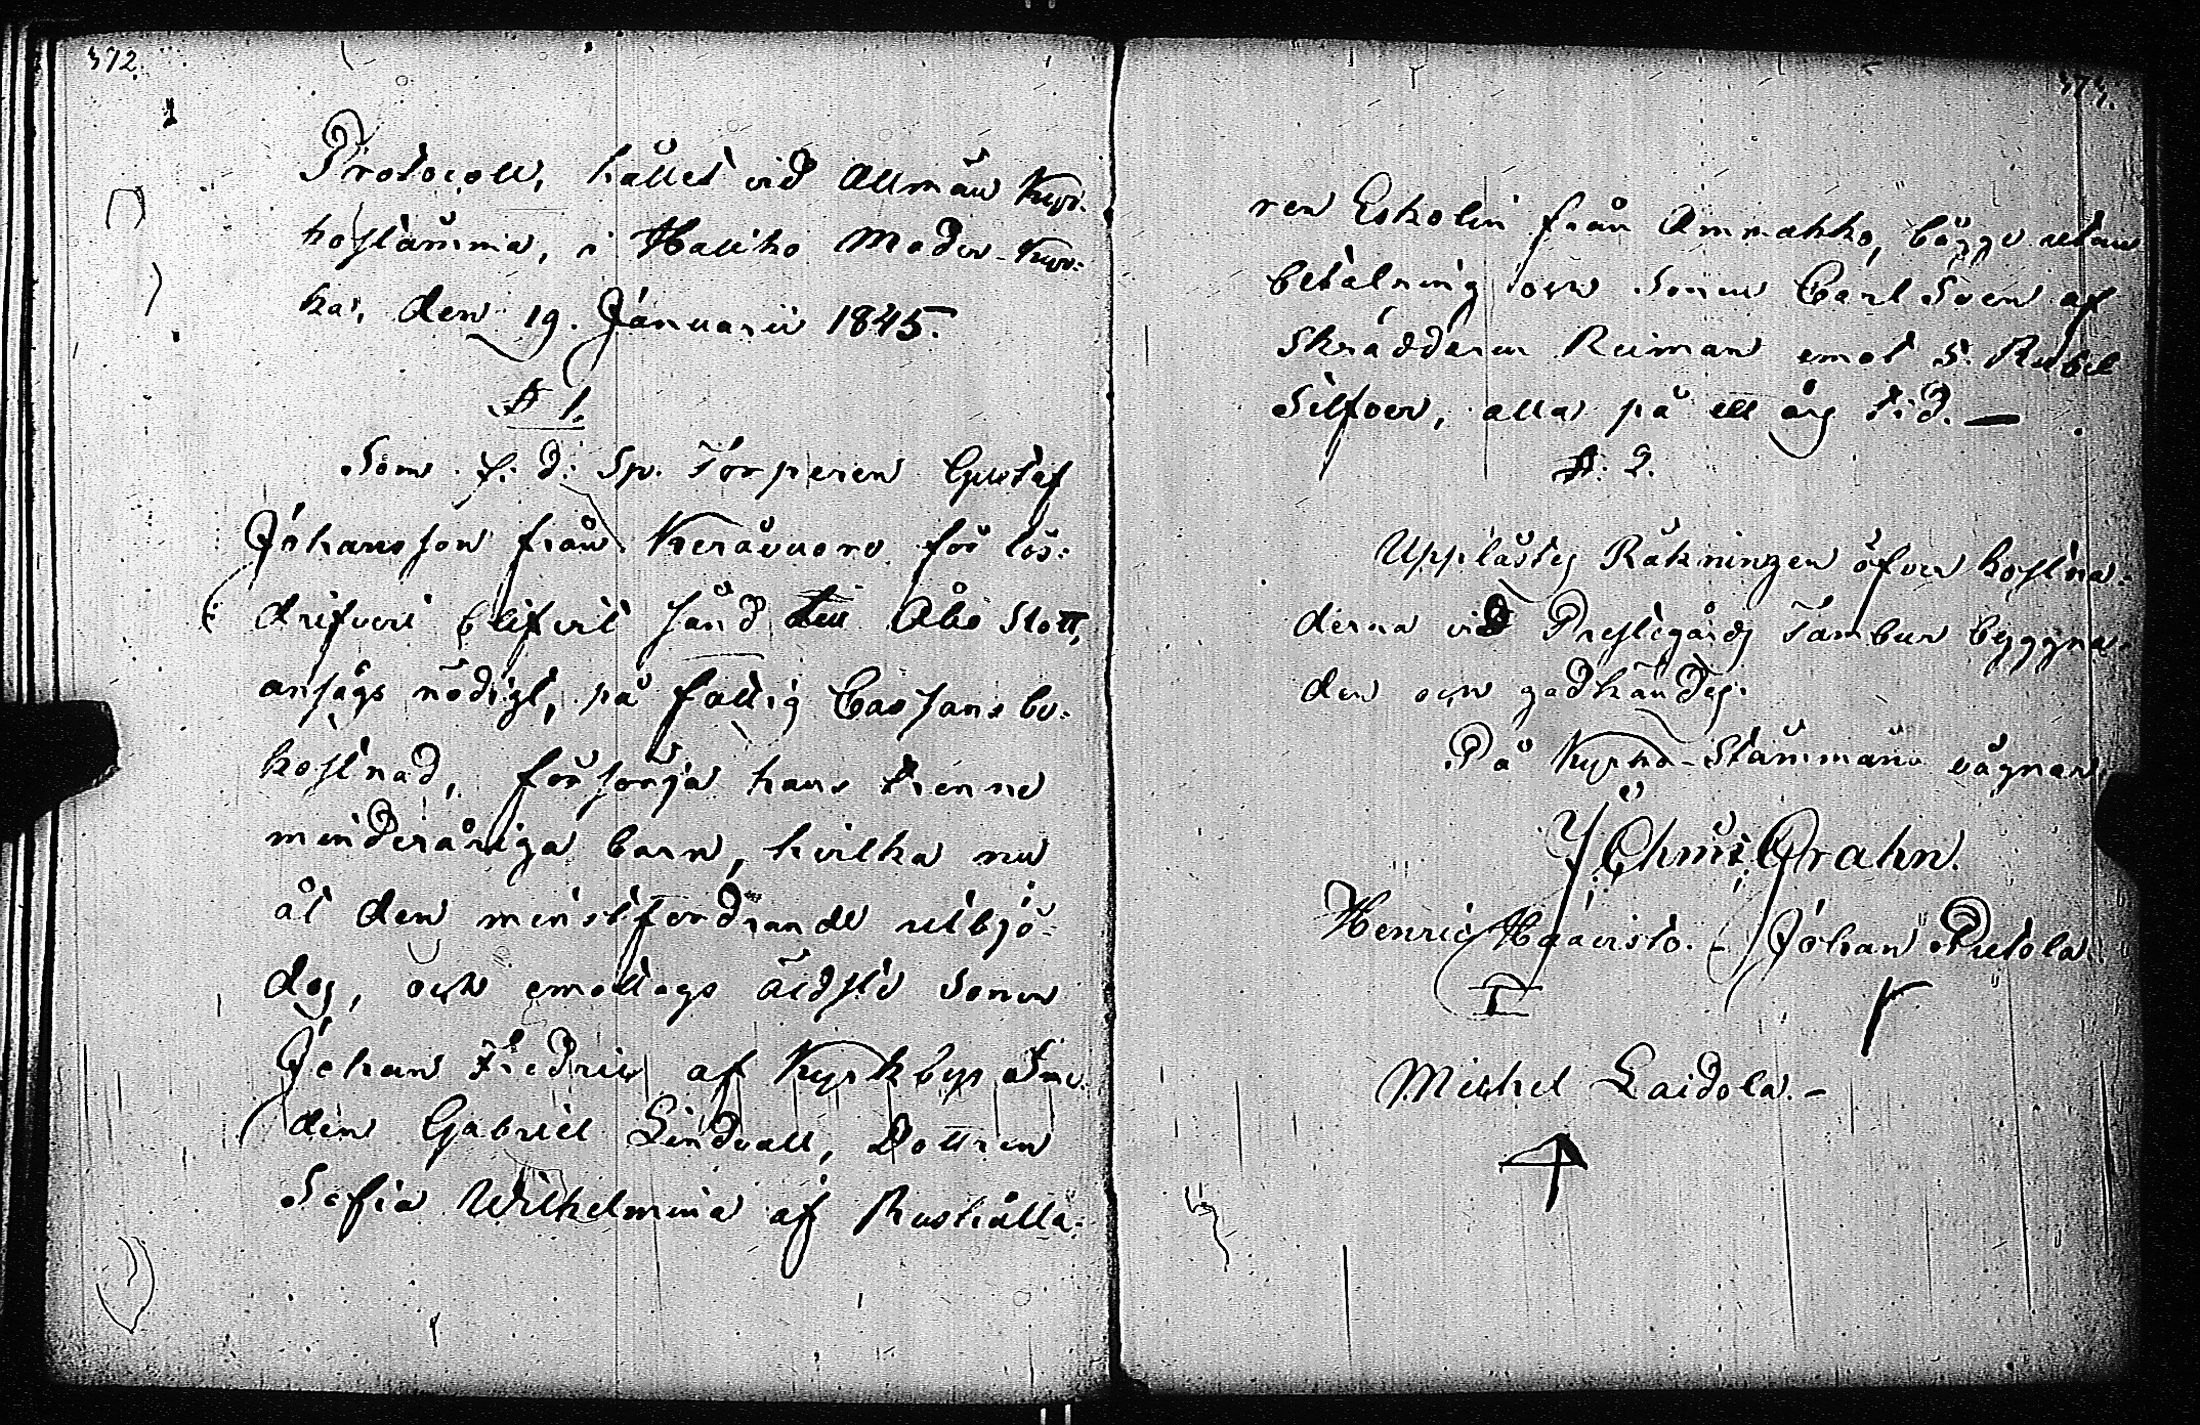 572.
Protocoll, hållet vid Allmän Kyr-
kostämma, i Haliko Moder-Kyr-
ka, den 19. Januarii 1845.
§ 1.
Som f: d: Sp. Torparen Gustaf
Johansson från Keråvuore för lös-
drifveri blifvit sänd till Åbo Slott,
ansågs nödigt, på fattig Cassans be-
kostnad, försörja hans trenne
minderåriga barn, hvilka nu
åt den minstfordrande utbjö-
dos, och emottogs äldste Sonen
Johan Fredric af Kyrkbyn Sme-
den Gabriel Lindvall, Dottren
Sofia Wilhelmina af Rusthålla-
573.
ren Eskolin från Ammakko, bägge utan
betalning och Sonen Carl Sven af
Skräddaren Reiman emot 5. Rubel
Silfver, alla på ett års tid. —
§. 2.
Upplästes Räkningen öfver kostna-
derna vid Prestegårds Tambur byggna-
den och godkändes.
På Kyrko-Stämmans vägnar,
J Ehrnst Grahn.
Henric Haavisto. - Johan Pietola.
Michel Laidola. -